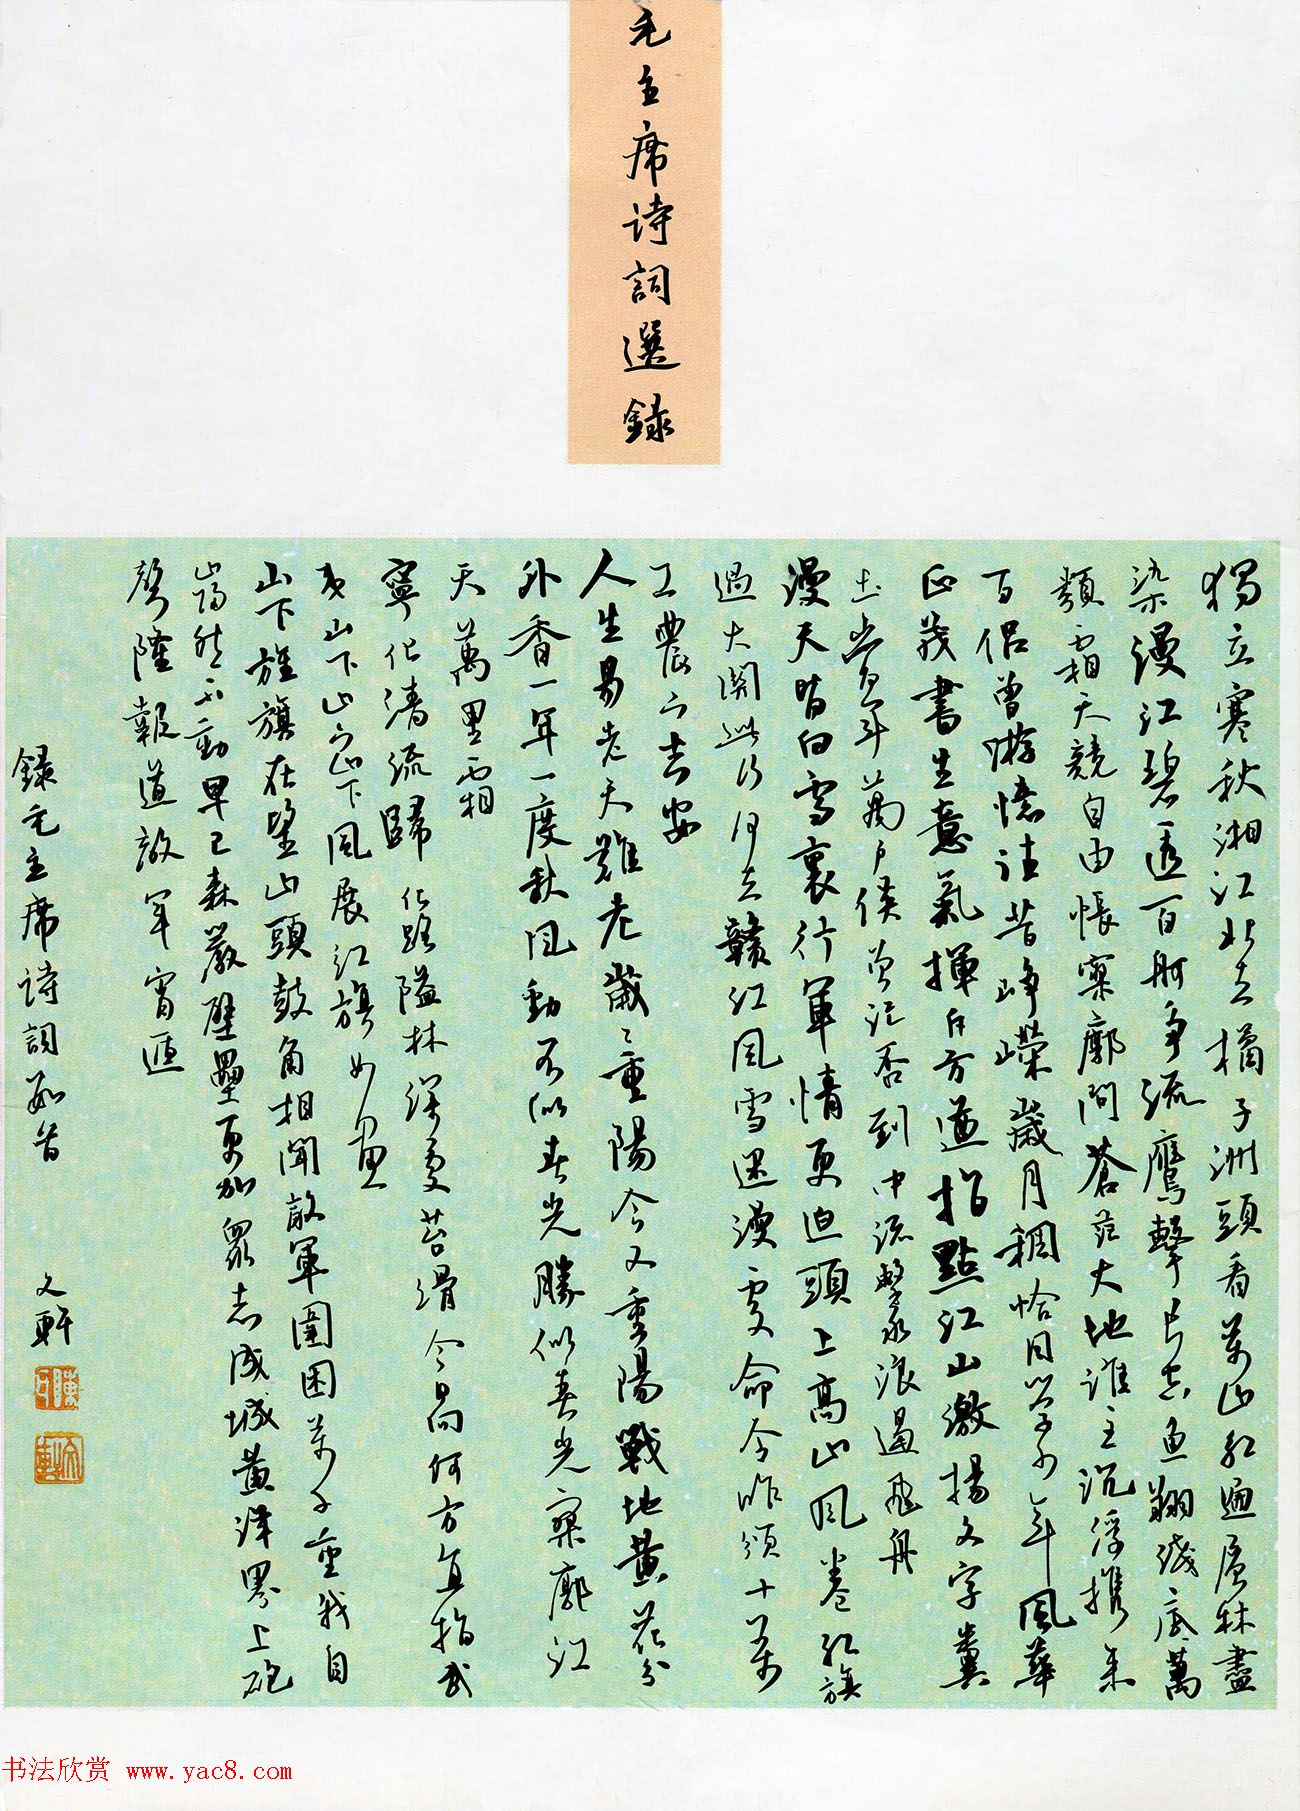 毛主席诗詞選錄
獨立寒秋湘江北去橘子洲頭看萬山紅遍層林盡
染漫江碧透百舸爭流鷹擊長空魚翔淺底萬
類霜天競自由悵寥廓問蒼茫大地誰主沉浮攜來
百侶曾游憶往昔崢嶸歲月稠恰同學少年風華
正茂書生意氣揮斥方遒指點江山激揚文字糞
土當年萬戶侯曾記否到中流擊水浪遏飛舟
漫天皆白雪裏行軍情更迫頭上高山風卷紅旗
過大関此行何去贛江風雪迷漫處命令昨頒十萬
工農下吉安
人生易老天難老歲々重陽今又重陽戰地黃花分
外香一年一度秋風勁不似春光勝似春光寥廓江
天萬里霜
寧化清流歸化路隘林深處苔滑今日向何方直指武
夷山下山下山下風展紅旗如畫
山下旌旗在望山頭鼓角相聞敵軍圍困萬千重我自
巋然不動早已森嚴壁壘更加眾志成城黃洋界上砲
聲隆報道敵軍宵遁
錄毛主席诗詞數首 文軒
文軒
书法欣赏 www.yac8.com